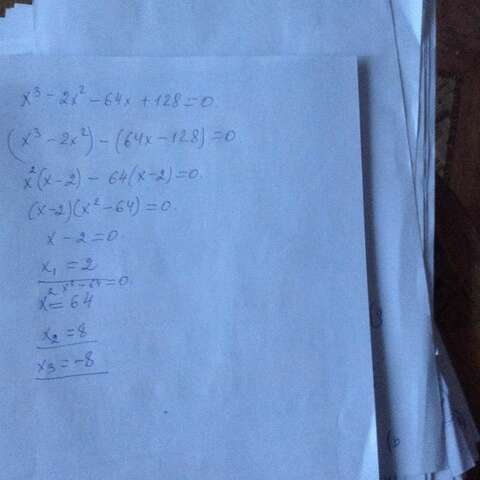 x³ - 2x² - 64x + 128 = 0.
(x³ - 2x²) - (64x - 128) = 0
x²(x - 2) - 64(x - 2) = 0.
(x - 2)(x² - 64) = 0.
x - 2 = 0.
x₁ = 2
x² - 64 = 0.
x² = 64
x₂ = 8
x₃ = -8